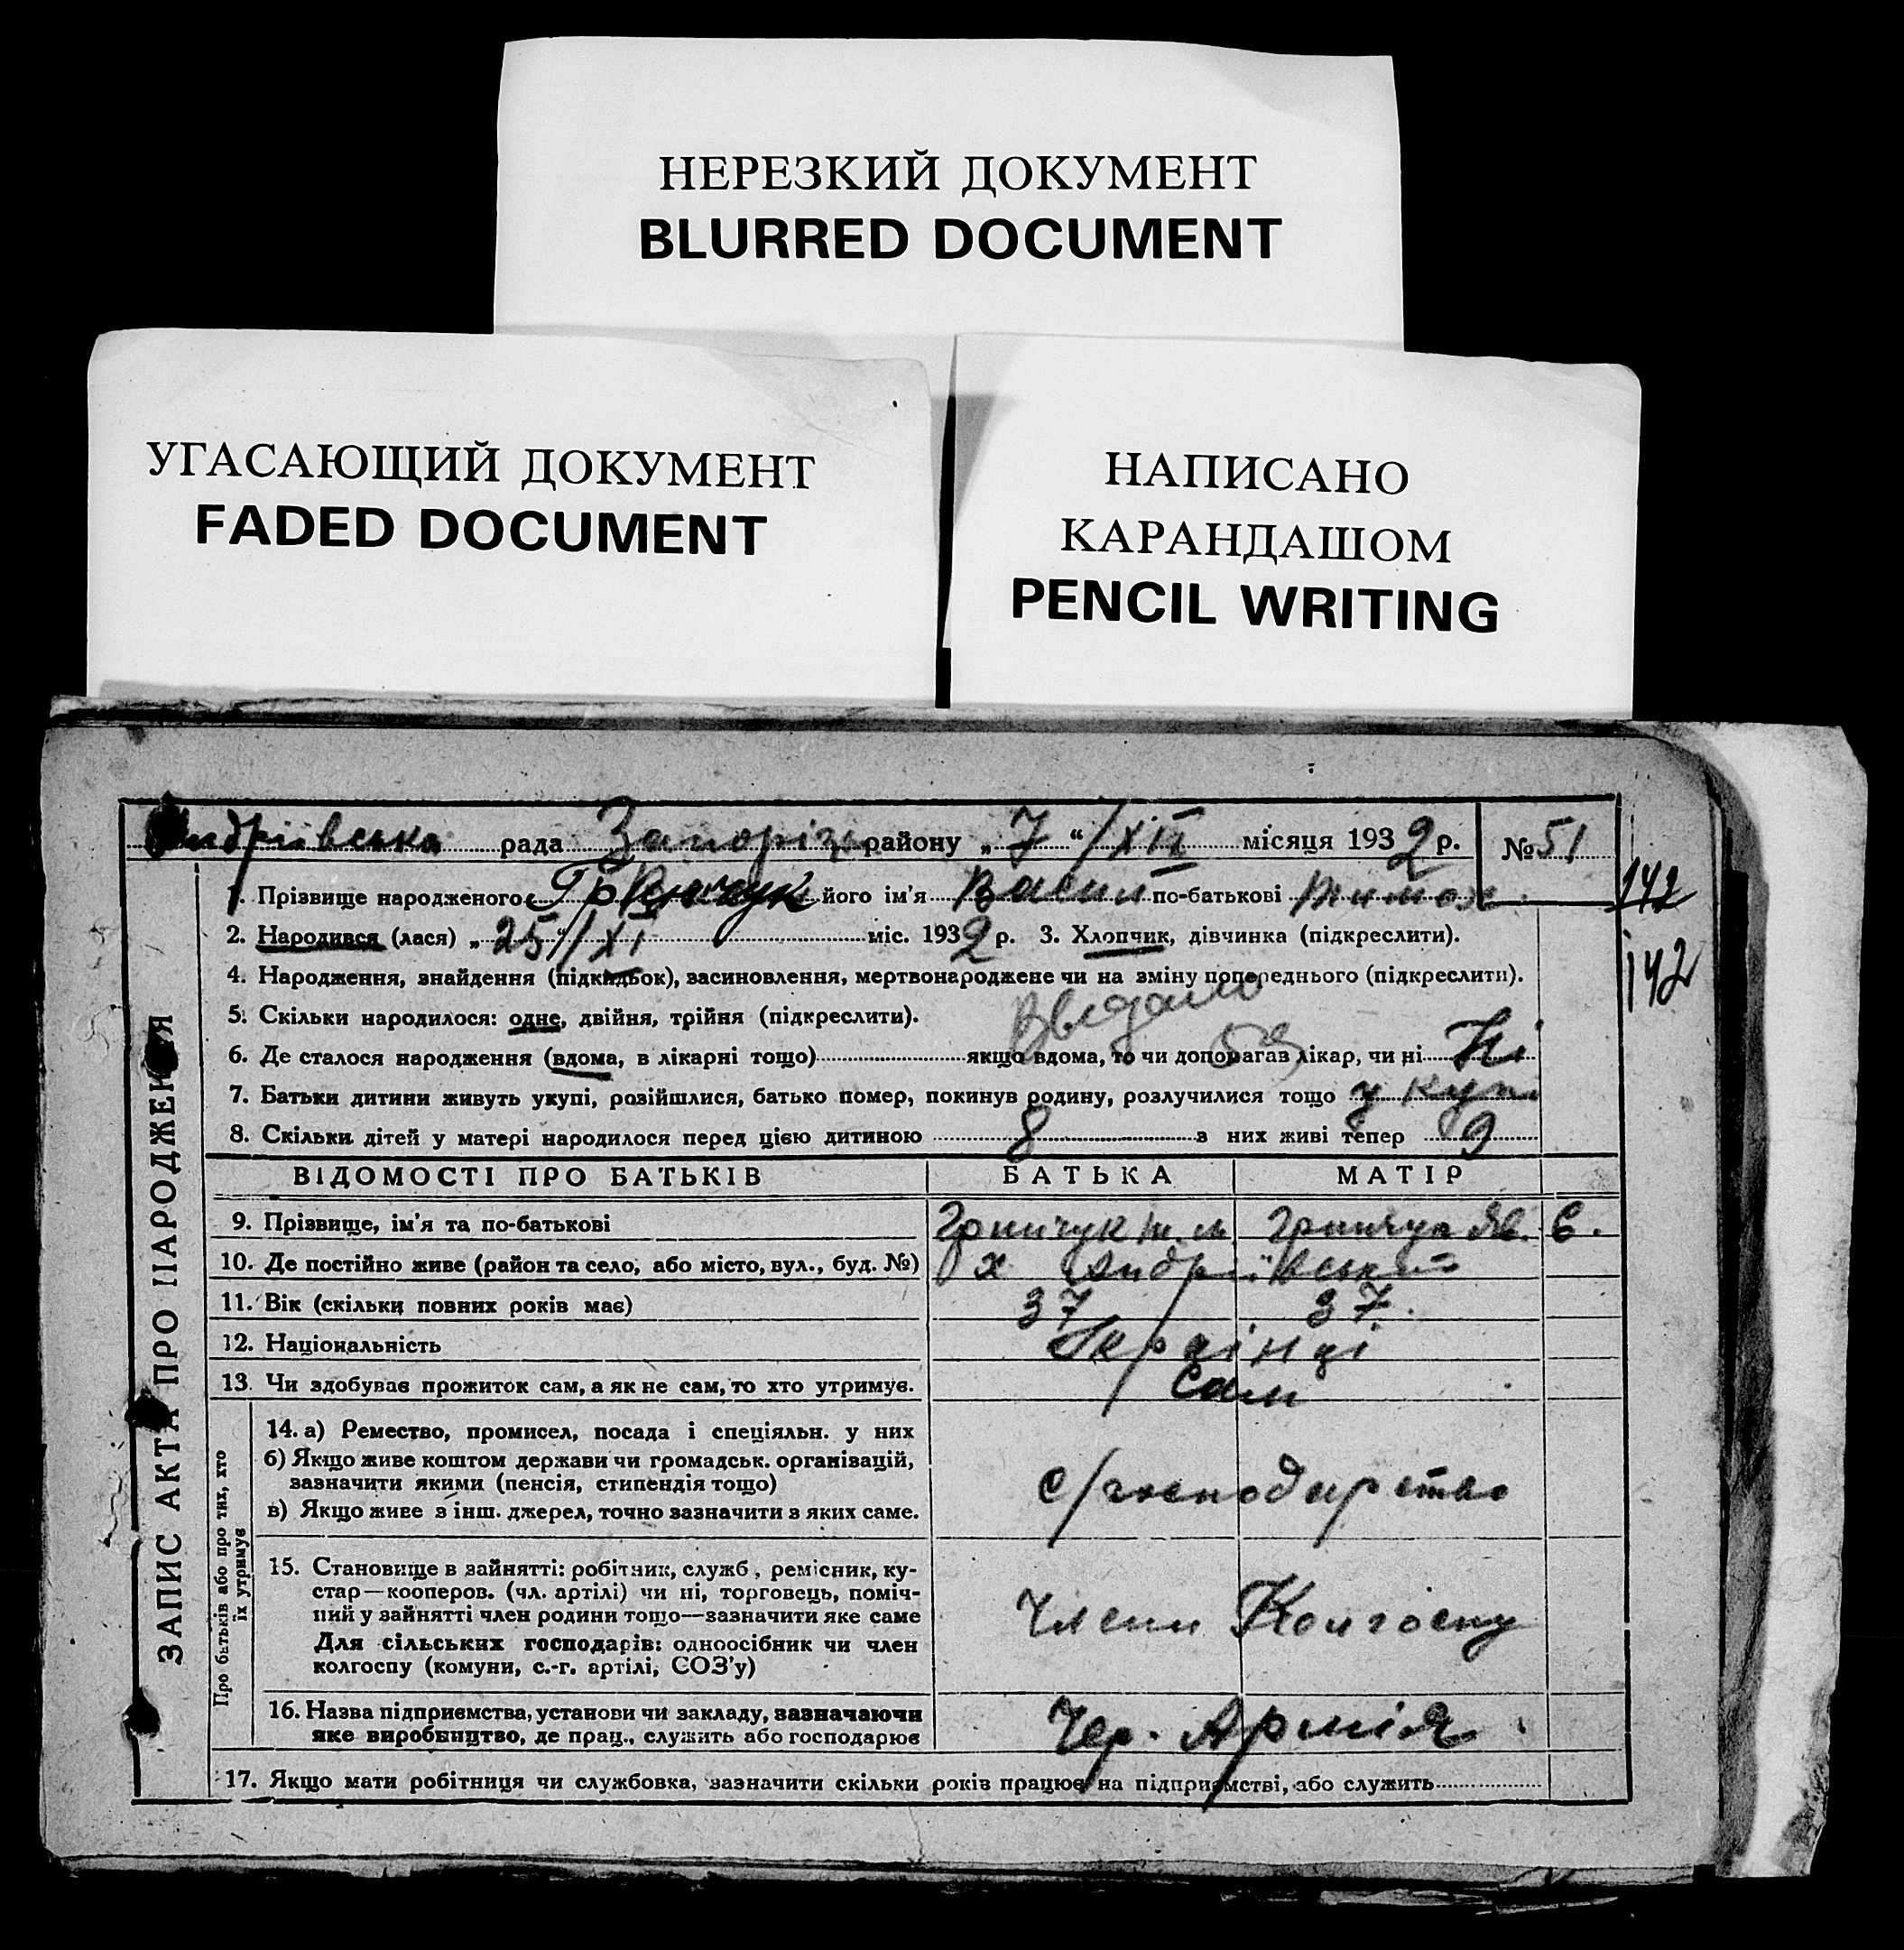 НЕРЕЗКИЙ ДОКУМЕНТ
BLURRED DOCUMENT
УГАСАЮЩИЙ ДОКУМЕНТ
FADED DOCUMENT
НАПИСАНО
КАРАНДАШОМ
PENCIL WRITING
Андріївська рада Запорізь району „7“/XII місяця 1932 р. № 51
1. Прізвище народженого його ім'я Васил по-батькові Тимох.
142
2. Народився (лася) „25“/XI міс. 1932 р. 3. Хлопчик, дівчинка (підкреслити).
142
4. Народження, знайдення (підкидьок), засиновлення, мертвонароджене чи на зміну попереднього (підкреслити).
5. Скільки народилося: одне, двійня, трійня (підкреслити).
6. Де сталося народження (вдома, в лікарні тощо) якщо вдома, то чи допомагав лікар, чи ні Ні
7. Батьки дитини живуть укупі, розійшлися, батько помер, покинув родину, розлучилися тощо у купі
8. Скільки дітей у матері народилося перед цією дитиною 8 з них живі тепер 9
ЗАПИС АКТА ПРО НАРОДЖЕННЯ
ВІДОМОСТІ ПРО БАТЬКІВ БАТЬКА МАТІР
9. Прізвище, ім'я та по-батькові Гринчук Т. М. Гринчук Яв. Є.
10. Де постійно живе (район та село, або місто, вул., буд. №) х Андріївський
11. Вік (скільки повних років має) 37 37.
12. Національність Українці
13. Чи здобуває прожиток сам, а як не сам, то хто утримує. Сам
Про батьків або про тих, хто їх утримує
14. а) Ремество, промисел, посада і спеціяльн. у них
б) Якщо живе коштом держави чи громадськ. організацій,
зазначити якими (пенсія, стипендія тощо)
в) Якщо живе з інш. джерел, точно зазначити з яких саме.
с/господарство
15. Становище в зайнятті: робітник, служб., ремісник, ку-
стар—кооперов. (чл. артілі) чи ні, торговець, поміч-
ний у зайнятті член родини тощо—зазначити яке саме
Для сільських господарів: одноосібник чи член
колгоспу (комуни, с.-г. артілі, СОЗ'у)
Члени Колгоспу
16. Назва підприємства, установи чи закладу, зазначаючи
яке виробництво, де прац., служить або господарює
Чер. Армія
17. Якщо мати робітниця чи службовка, зазначити скільки років працює на підприємстві, або служить